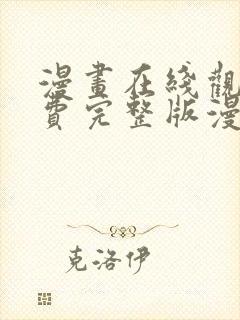 漫畫在綫觀
費完整版漫
克洛伊